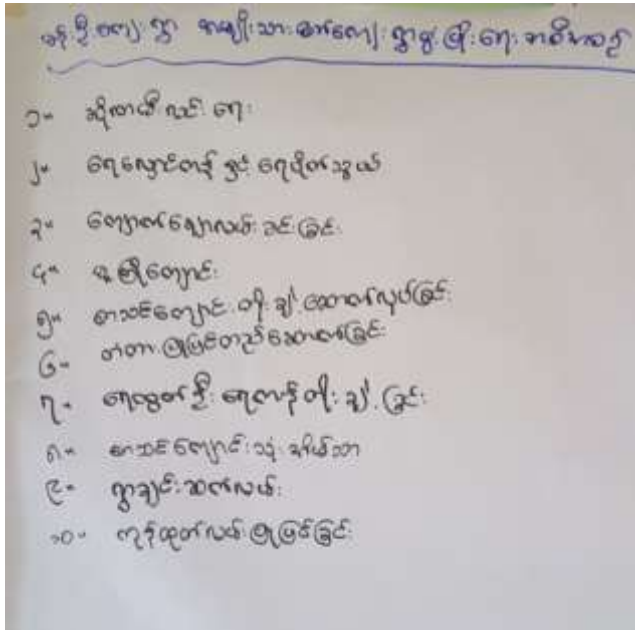 ခန်းဦးကျေးရွာ အမျိုးသား ကျေးရွာဖွံ့ဖြိုးရေး အစီအစဉ်
၁။ ဆိုလာမီးလင်းရေး
၂။ ရေလှောင်ကန် နှင့် ရေပိုက်သွယ်
၃။ ကျောက်ချောလမ်းခင်းခြင်း
၄။ မူကြိုကျောင်း
၅။ စာသင်ကျောင်း တိုးချဲ့ဆောက်လုပ်ခြင်း
၆။ တံတားပြုပြင်တည်ဆောက်ခြင်း
၇။ ရေထွက်ဦး ရေကန်တိုးချဲ့ခြင်း
၈။ စာသင်ကျောင်းသုံး အိမ်သာ
၉။ ရွာချင်းဆက်လမ်း
၁၀။ ကုန်ထုတ်လမ်းပြုပြင်ခြင်း